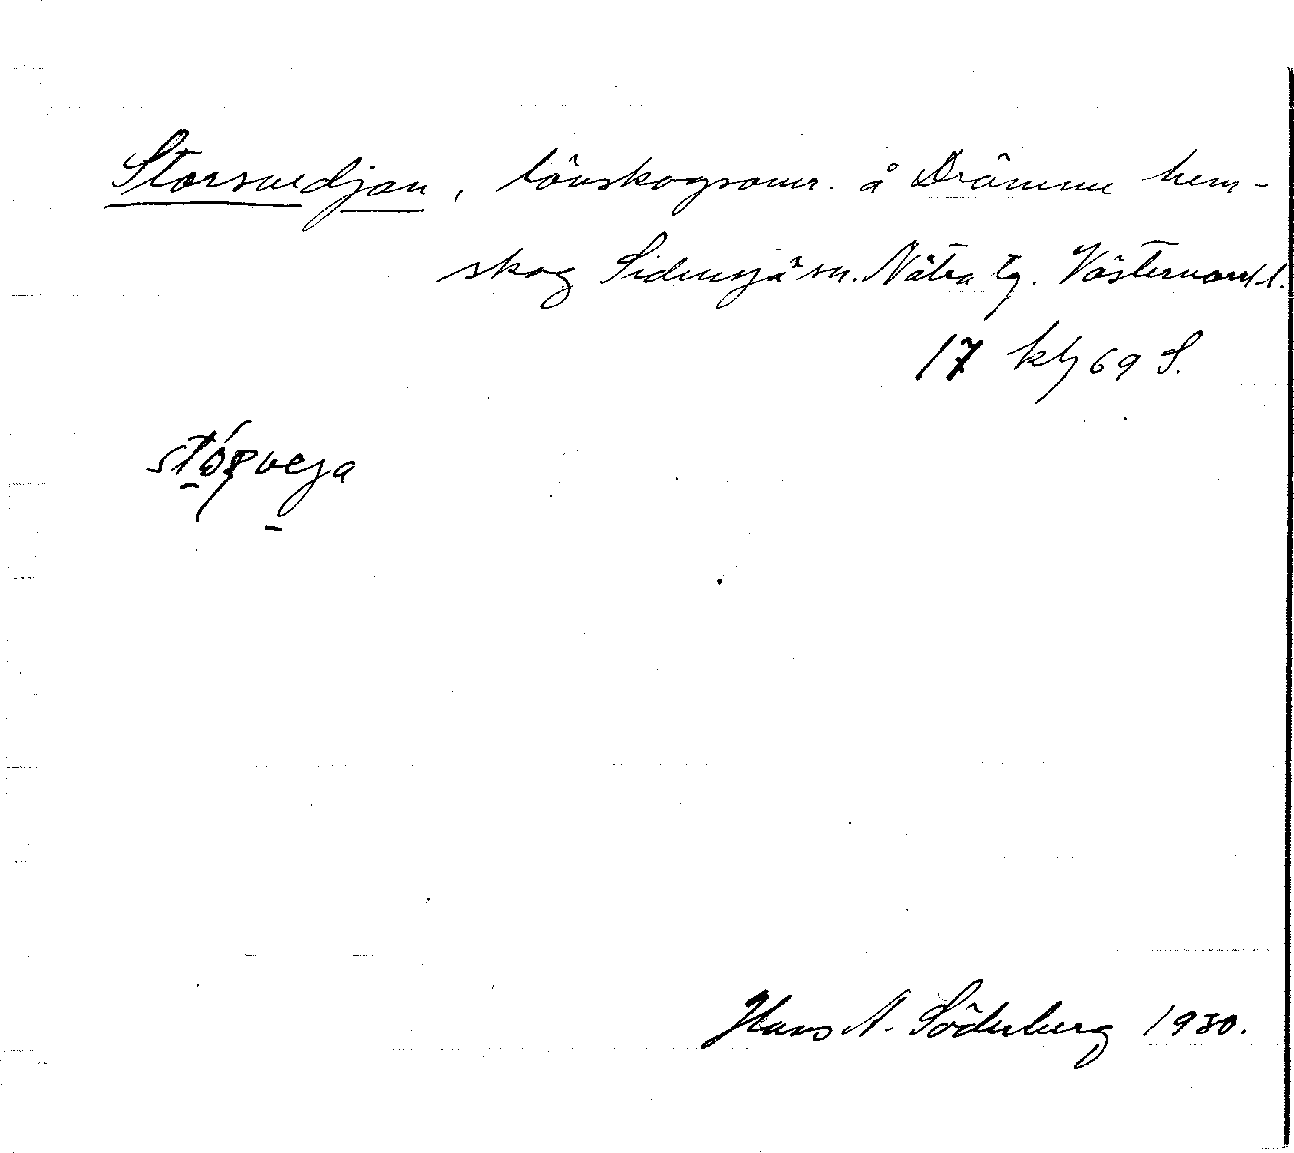 Storsvedjan, lövskogsomr. å Drömme hem-
skog Sidensjö sn. Nätra tg. Västernorrl. l.
17 kb 69 S.
Hans N. Söderberg 1930.